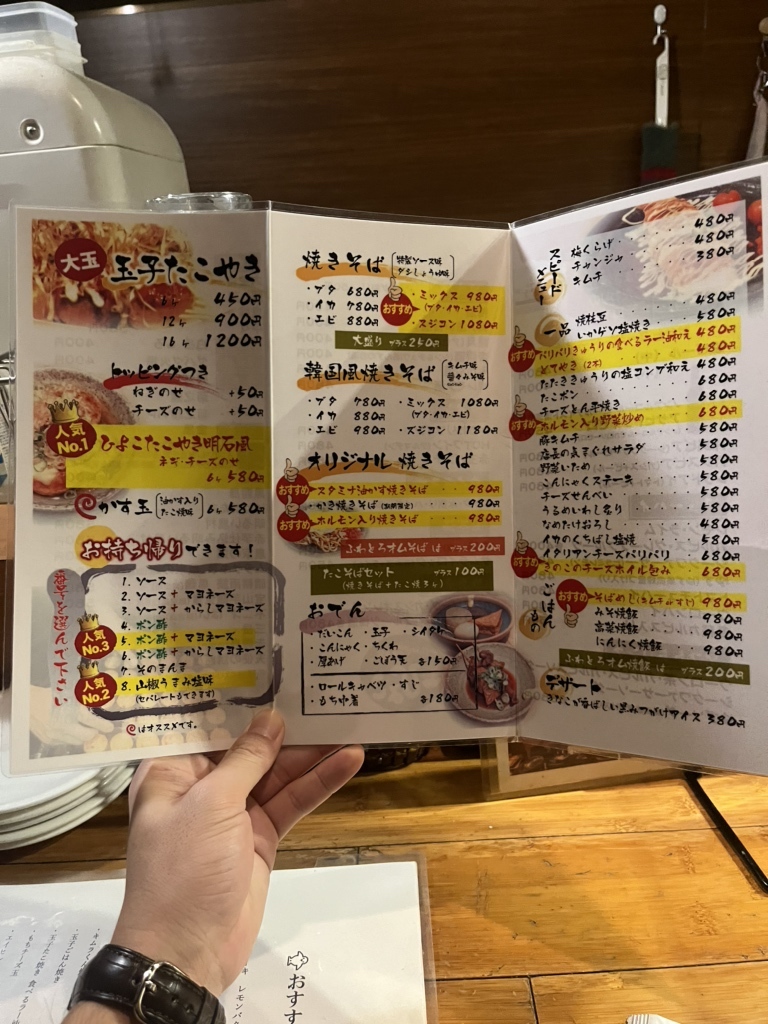 大玉
玉子たこやき
6ヶ 450円
12ヶ 900円
16ヶ 1200円
トッピングつき
ねぎのせ +50円
チーズのせ +50円
人気No.1
ひよこたこやき明石風
ネギ・チーズのせ
6ヶ 580円
かす玉 油かす入りたこ焼き 6ヶ 580円
お持ち帰りできます!
番号を選んで下さい
1. ソース
2. ソース+マヨネーズ
3. ソース+からしマヨネーズ
4. ポン酢
人気No.3
5. ポン酢+マヨネーズ
6. ポン酢+からしマヨネーズ
7. そのまんま
人気No.2
8. 山椒うまみ塩味
(セパレートもできます)
はオススメです。
焼きそば
特製ソース味
ダシしょうゆ味
・ブタ 680円
・イカ 780円
・エビ 880円
おすすめ
・ミックス 980円
(ブタ・イカ・エビ)
・スジコン 1080円
大盛り プラス250円
韓国風焼きそば
キムチ味
・ブタ 780円
・イカ 880円
・エビ 980円
・ミックス 1080円
(ブタ・イカ・エビ)
・スジコン 1180円
オリジナル 焼きそば
おすすめ
スタミナ油かす焼きそば 980円
かき焼きそば 980円
おすすめ
ホルモン入り焼きそば 980円
ふわとろオムそばは プラス200円
たこそばセット プラス100円
(焼きそば+たこ焼3ヶ)
おでん
・だいこん ・玉子 ・シイタケ
・こんにゃく ・ちくわ
・厚あげ ・ごぼう天 各150円
・ロールキャベツ ・すじ
・もち巾着 各180円
スピードメニュー
梅くらげ 480円
チャンジャ 480円
キムチ 380円
一品
焼枝豆 480円
いかゲソ塩焼き 480円
おすすめ
パリパリきゅうりの食べるラー油和え 480円
とてやき(2本) 480円
たたききゅうりの塩コンブ和え 480円
たこポン 480円
チーズとん平焼き 680円
おすすめ
ホルモン入り野菜炒め 680円
豚キムチ 580円
店長の気まぐれサラダ 580円
野菜いため 580円
こんにゃくステーキ 580円
チーズせんべい 580円
うるめいわし名り 580円
なめたけおろし 480円
イカのくちばし塩焼 580円
イタリアンチーズパリパリ 680円
おすすめ
きのこのチーズホイル包み 680円
ごはんもの
おすすめ
そばめし 980円
みそ焼飯 980円
高菜焼飯 980円
にんにく焼飯 980円
ふわとろオム焼飯は プラス200円
デザート
きなこが香ばしい黒みつがけアイス 380円
おすす
レモンバ
玉子ごはん焼き
玉子たこ焼き 食べるラー油
もちチーズ玉